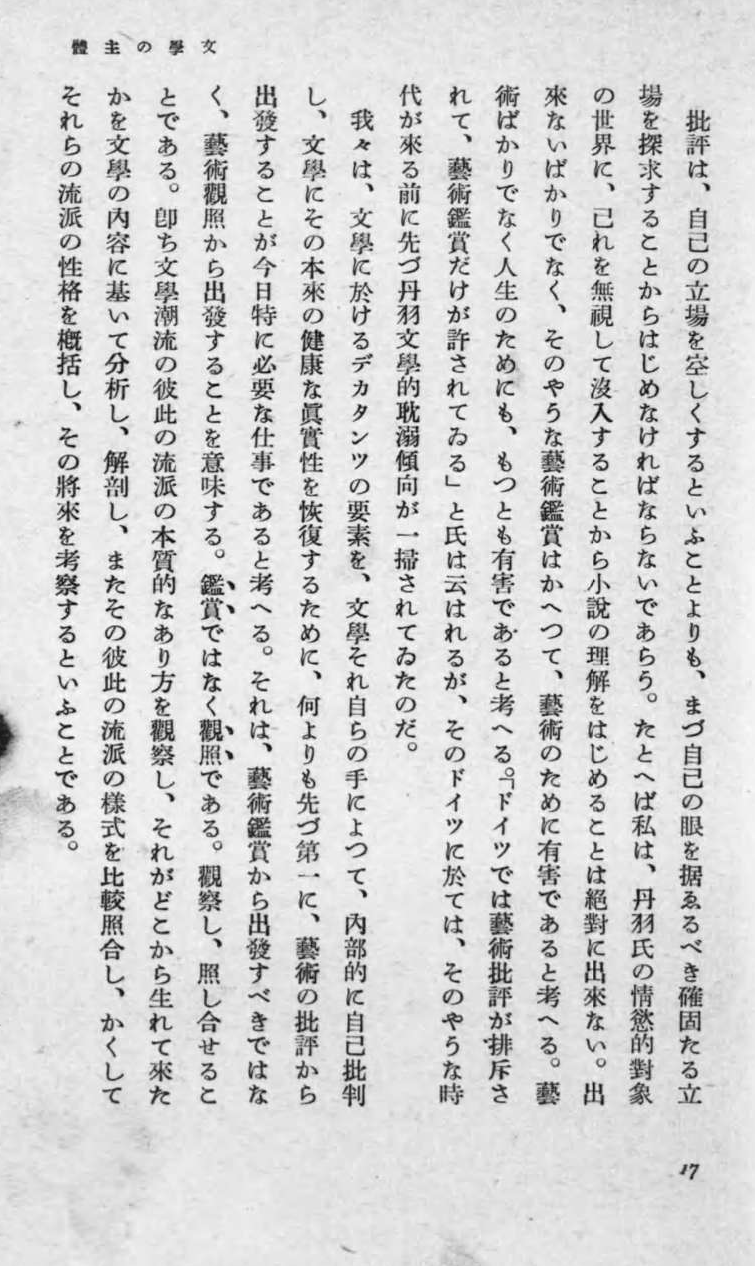 文學の主體
批評は、自己の立場を空しくするといふことよりも、まづ自己の眼を据ゑるべき確固たる立
場を探求することからはじめなければならないであらう。たとへば私は、丹羽氏の情慾的對象
の世界に、己れを無視して沒入することから小說の理解をはじめることは絕對に出來ない。出
來ないばかりでなく、そのやうな藝術鑑賞はかへつて、藝術のために有害であると考へる。藝
術ばかりでなく人生のためにも、もつとも有害であると考へる。「ドイツでは藝術批評が排斥さ
れて、藝術鑑賞だけが許されてゐる」と氏は云はれるが、そのドイツに於ては、そのやうな時
代が來る前に先づ丹羽文學的耽溺傾向が一掃されてゐたのだ。
我々は、文學に於けるデカタンツの要素を、文學それ自らの手によつて、內部的に自己批判
し、文學にその本來の健康な眞實性を恢復するために、何よりも先づ第一に、藝術の批評から
出發することが今日特に必要な仕事であると考へる。それは、藝術鑑賞から出發すべきではな
く、藝術觀照から出發することを意味する。鑑賞ではなく觀照である。觀察し、照し合せるこ
とである。卽ち文學潮流の彼此の流派の本質的なあり方を觀察し、それがどこから生れて來た
かを文學の內容に基いて分析し、解剖し、またその彼此の流派の樣式を比較照合し、かくして
それらの流派の性格を槪括し、その將來を考察するといふことである。
17